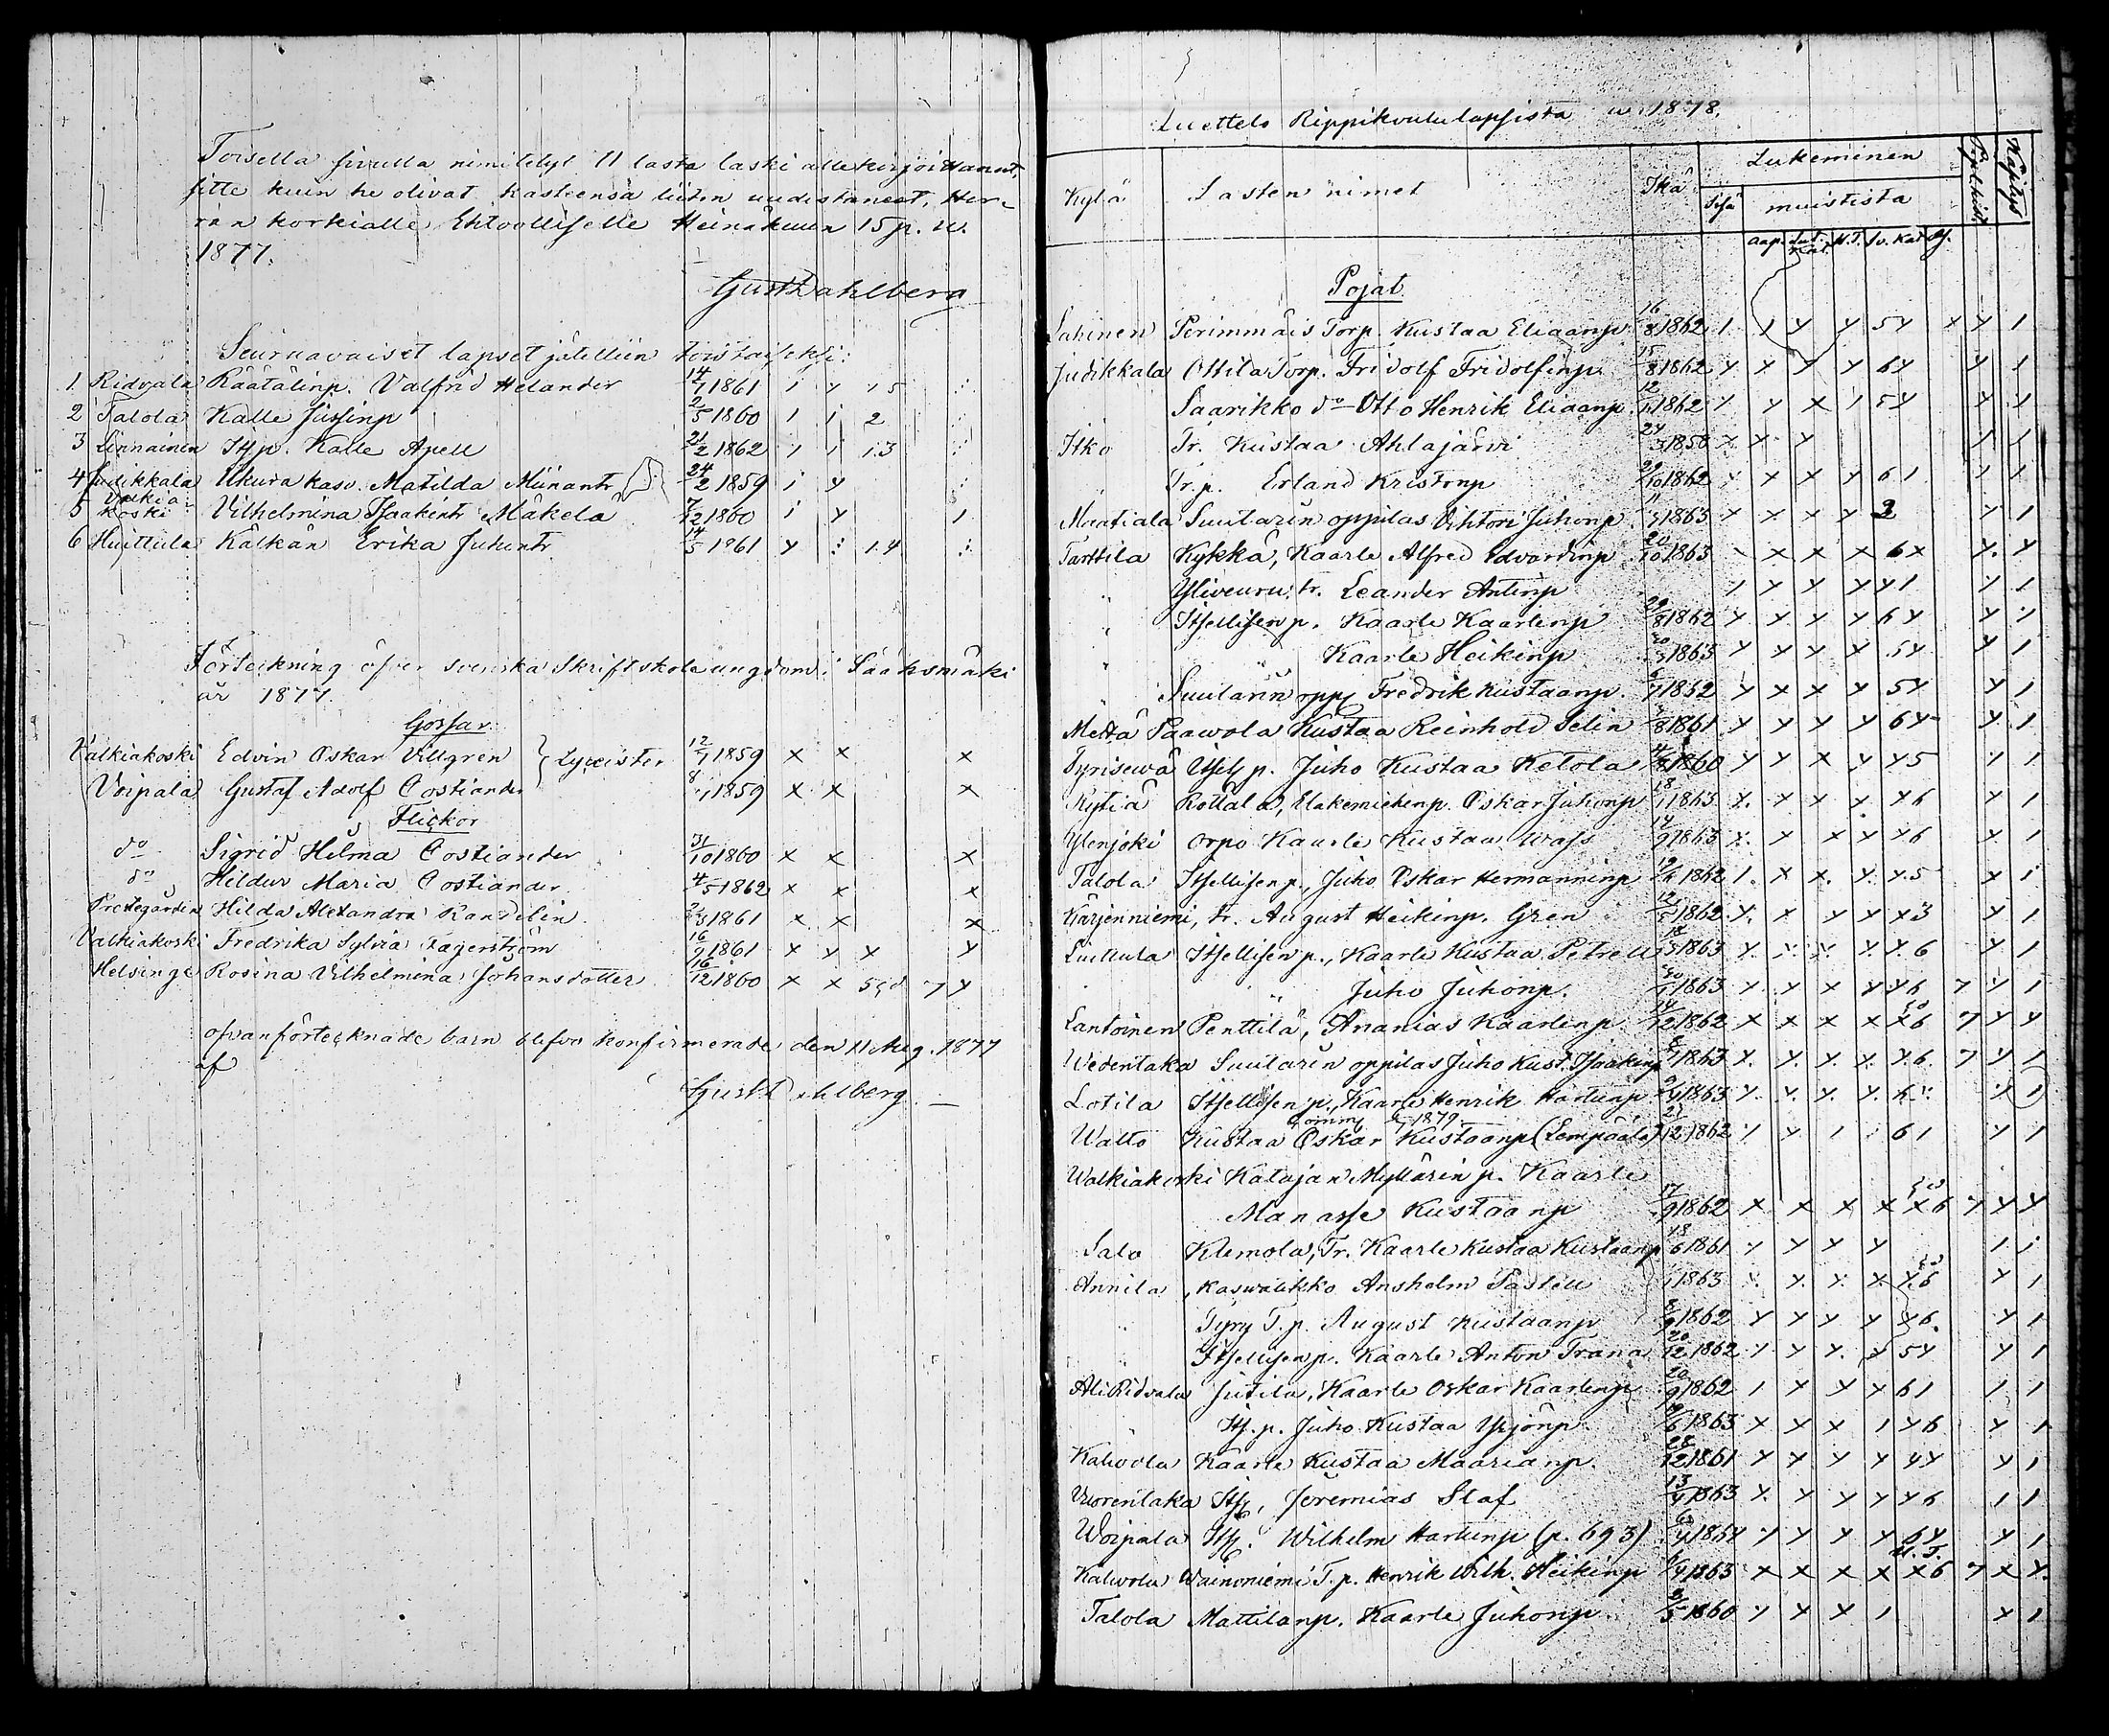 Toisella sivulla nimitetyt 11 lasta laski allekirjoittanut,
sitte kuin he olivat kasteensa liiton uudistaneet, Her-
ran korkialle Ehtoolliselle Heinäkuun 15 p. w.
1877.
Gust Dahlberg
Seuraavaiset lapset jätettiin toistaiseksi:
1 Ridvala Räätälinp. Valfrid Helander 14/7 1861 1 y 15
2 Talola Kalle Jussinp 2/5 1860 1 1 2
3 Linnainen Itp. Kalle Apell 21/2 1862 1 1 1.3
4 Judikkala Ukura kasv. Matilda Miinantr 24/2 1859 1 y
5 Valkiakoski Vilhelmina Isaakintr Mäkelä 7/12 1860 1 y 1
6 Huittula Kälkän Erika Juhontr 14/5 1861 y 1.4
Förteckning öfver svenska Skriftskoleungdom i Sääksmäki
år 1877.
Gossar
Valkiakoski Edvin Oskar Villgren } Lyceister 12/7 1859 x x x
Voipala Gustaf Adolf Costiander 8/1 1859 x x x
Flickor
do Sigrid Hilma Costiander 31/10 1860 x x x
do Hildur Maria Costiander 4/5 1862 x x x
Prestegården Hilda Alexandra Kandelin 1861 x x x
Valkiakoski Fredrika Sylvia Fagerström 16/9 1861 x y x y
Helsinge Rosina Vilhelmina Johansdotter 16/12 1860 x x 7 y
ofvanförtecknade barn blefvo konfirmerade den 11 Aug. 1877
af
Gust Dahlberg
Luettelo Rippikoululapsista w. 1878.
Kylä Lasten nimet Ikä Lukeminen Käsitys
Sisä muistista
aap. Lut. Kat. H.T. Sv. Kat
Pojat
Lahinen Perimmäis Torp. Kustaa Eliaanp. 16/8 1862 1 1 y y 5y x y 1
Judikkala Ottila Torp. Fridolf Fridolfinp. 15/8 1862 y y y y 6y y 1
Saarikko do Otto Henrik Eliaanp. 1862 y y x 1 5y y 1
Itko Tr. Kustaa Ahlajärvi 24/3 1858 x x y 1 1
" Tr.p. Erland Kristonp 29/10 1862 y x x y 61 1 1
Maatiala Suutarin oppilas Vihtori Juhonp 1863 x x x y 3 y 1
Tarttila Kykkä, Kaarle Alfred Edvardinp 20/10 1863 x x x x 6x y. y
" Yliveuru, tr. Leander Antinp 1 y y y y1 y 1
" Itsellisenp. Kaarle Kaarlenp 29/8 1862 y y y y 6y y 1
" " Kaarle Heikinp 1863 y y y x 5y y 1
" Suutarin opp Fredrik Kustaanp. 1862 y x x y 5y y 1
Metsä Paawola Kustaa Reinhold Selin 1861 x y y y 6y y 1
Tyrisewä Itsel. p. Juho Kustaa Ketola 1860 y y x y y5 y 1
Kytiä Rottala, Elakemiehenp. Oskar Juhonp 18/1 1863 x. x x x x6 y 1
Ylenjoki Orpo Kaarle Kustaa Wass 14/9 1863 x. x x x x6 x 1
Talola Itsellisenp., Juho Oskar Hermanninp 1862 1. x x. y. y.5 y 1
Kärjenniemi, tr. August Heikinp. Gren 12/5 1862 y. x y y x3 y 1
Luttula Itsellisenp., Kaarle Kustaa Petrell 18/3 1863 y. y. y. y. y. 6 y 1
" Juho Juhonp. 1863 y y x y y6 7 y 1
Lantoinen Penttilä, Ananias Kaarlenp 14/12 1862 x x x x x6 7 y y
Wedentaka Suutarin oppilas Juho Kust. Isaakinp 1863 y. y. y. y. y.6 7 y 1
Lotila Itsellisenp., Kaarle Henrik Hartunp 1863 y. y. y. y. 6y. y 1
Comm. 1879
Walto Kustaa Oskar Kustaanp (Lempäälä) 1862 y y 1 61 y 1
Walkiakoski Katajan Myllärin p. Kaarle
Manasse Kustaanp 17/9 1862 x x x x x6 7 y y
Salo Klemola, Tr. Kaarle Kustaa Kustaanp 18/6 1861 y y y y 1 1
Annila, Kaswatikko Anshelm Pastell 1863 y. y. y. x y.6 y 1
" Tyry T.p. August Kustaanp 8/9 1862 y y y y y6. y 1
" Itsellisenp. Kaarle Anton Trana 20/12 1862 y y y. y 5y y 1
Ali Ridvala Jutila, Kaarle Oskar Kaarlenp 20/9 1862 1 x y y 61 1 1
Its. p. Juho Kustaa Yrjönp 1863 x x x 1 y6 y 1
Kalwola Kaarle Kustaa Maarianp. 28/12 1861 y y y y 4y y 1
Wuorentaka Its, Jeremias Slaf 13/4 1863 x. y y y y6 1 1
Woipala Its. Wilhelm Hartunp (p. 693) y y y y 6y y 1
H.T.
Kalwola Wainoniemi T.p. Henrik Wilh. Heikinp 6/4 1863 x x x x x6 7 x x.
Talola Mattilanp. Kaarle Juhonp 2/5 1860 y y x 1 y 1